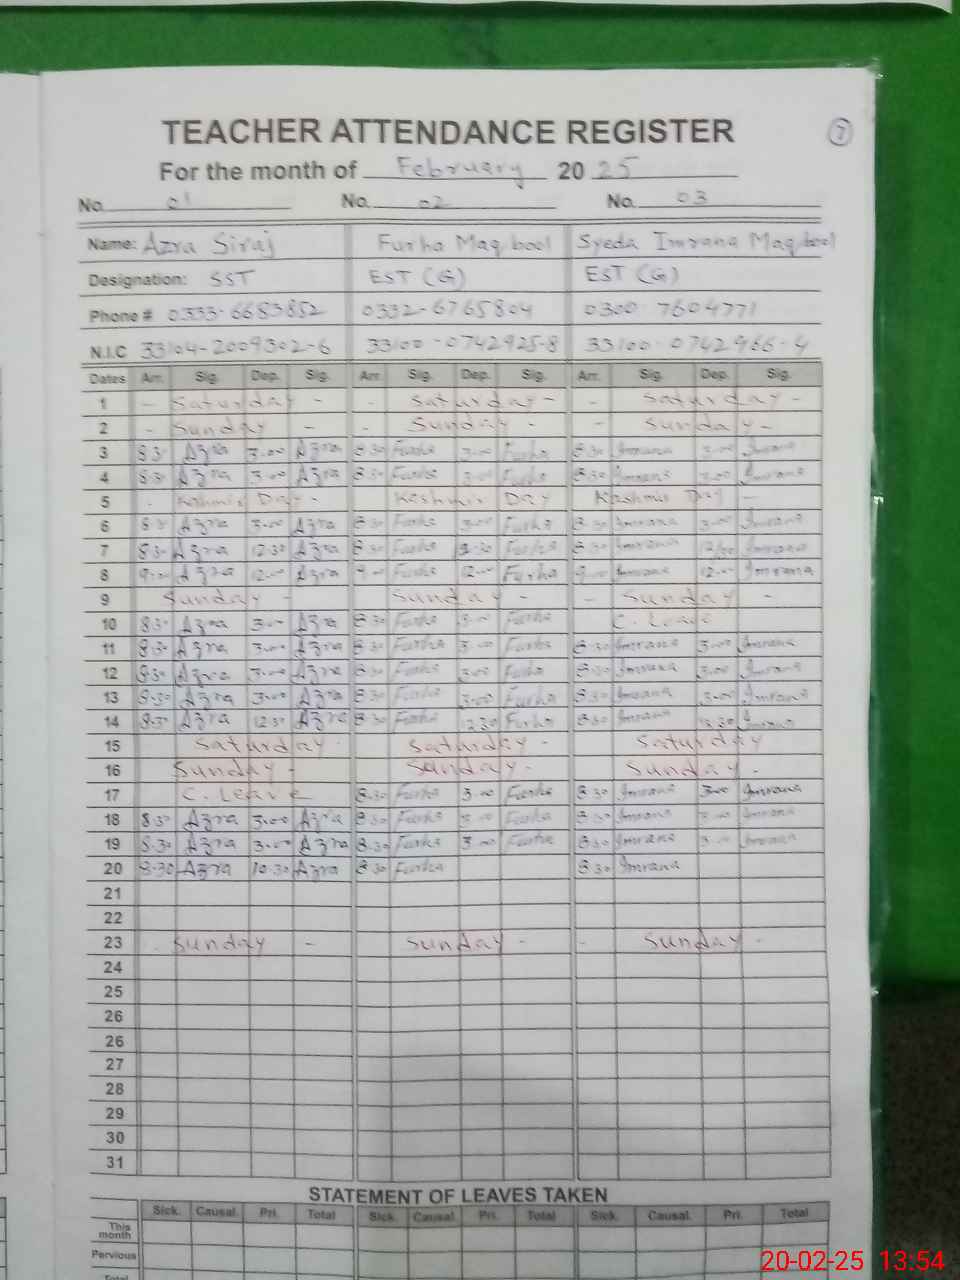 7
TEACHER ATTENDANCE REGISTER
For the month of February 2025
No. 01 No. 02 No. 03
Name: Azra Siraj Furha Maqbool Syeda Imrana Maqbool
Designation: SST EST (G) EST (G)
Phone # 0333-6683852 0332-6765804 0300 7604771
N.I.C 33104-2009302-6 33100-0742925-8 33100-0742966-4
Dates Arr. Sig. Dep. Sig. Arr. Sig. Dep. Sig. Arr. Sig. Dep. Sig.
1 - Saturday - - Saturday - - Saturday -
2 - Sunday - - Sunday - - Sunday -
3 8.30 Azra 3.00 Azra 8.30 Furha 3.00 Furha 8.30 Imrana 3.00 Imrana
4 8.30 Azra 3.00 Azra 8.30 Furha 3.00 Furha 8.30 Imrana 3.00 Imrana
5 - Kashmir Day - Kashmir Day Kashmir Day -
6 8.30 Azra 3.00 Azra 8.30 Furha 3.00 Furha 8.30 Imrana 3.00 Imrana
7 8.30 Azra 12.30 Azra 8.30 Furha 12.30 Furha 8.30 Imrana Imrana
8 9.00 Azra 12.00 Azra 9.00 Furha 12.00 Furha 9.00 Imrana 12.00 Imrana
9 Sunday - Sunday - - Sunday -
10 8.30 Azra 3.00 Azra 8.30 Furha 3.00 Furha C. Leave
11 8.30 Azra 3.00 Azra 8.30 Furha 3.00 Furha 8.30 Imrana 3.00 Imrana
12 8.30 Azra 3.00 Azra 8.30 Furha 3.00 Furha 8.30 Imrana 3.00 Imrana
13 8.30 Azra 3.00 Azra 8.30 Furha 3.00 Furha 8.30 Imrana 3.00 Imrana
14 8.30 Azra 12.30 Azra 8.30 Furha 12.30 Furha 8.30 Imrana 12.30 Imrana
15 Saturday - Saturday - Saturday
16 Sunday - Sunday - Sunday -
17 C. Leave 8.30 Furha 3.00 Furha 8.30 Imrana 3.00 Imrana
18 8.30 Azra 3.00 Azra 8.30 Furha 3.00 Furha 8.30 Imrana 3.00 Imrana
19 8.30 Azra 3.00 Azra 8.30 Furha 3.00 Furha 8.30 Imrana 3.00 Imrana
20 8.30 Azra 10.30 Azra 8.30 Furha 8.30 Imrana
21
22
23 - Sunday - Sunday - - Sunday -
24
25
26
26
27
28
29
30
31
STATEMENT OF LEAVES TAKEN
Sick. Causal. Pri. Total Sick. Causal. Pri. Total Sick. Causal. Pri. Total
This month
Pervious
Total
20-02-25 13:54